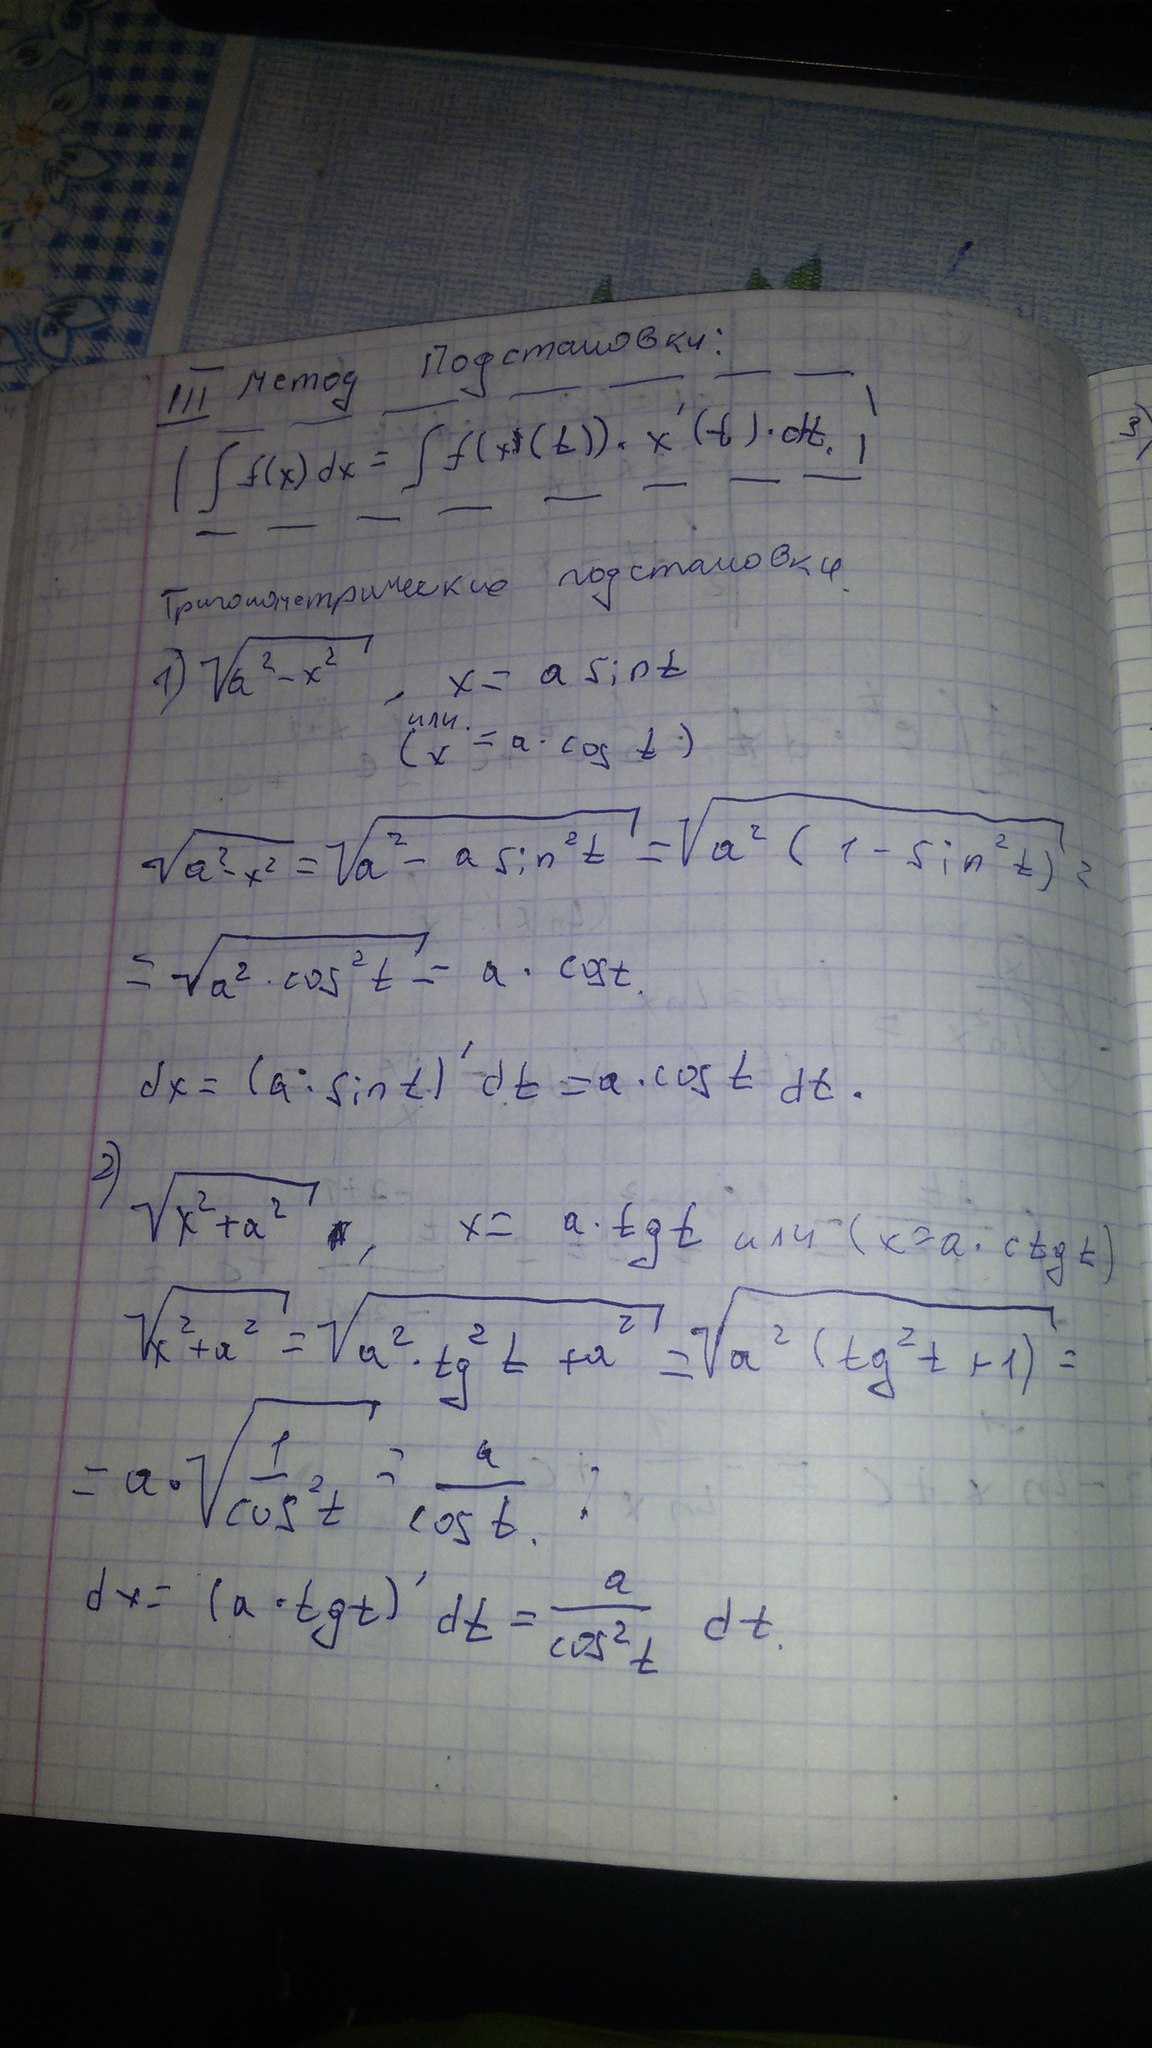 III Метод Подстановки:
∫ f(x) dx = ∫ f(x(t)) · x'(t) · dt.
Тригонометрические подстановки.
1) √(a² - x²) , x = a sin t
или
(x = a · cos t)
√(a² - x²) = √(a² - a sin² t) = √(a² (1 - sin² t)) =
= √(a² · cos² t) = a · cos t.
dx = (a · sin t)' dt = a · cos t dt.
2) √(x² + a²) , x = a · tg t или (x = a · ctg t)
√(x² + a²) = √(a² · tg² t + a²) = √(a² (tg² t + 1)) =
= a · √(1/cos² t) = a/cos t. ;
dx = (a · tg t)' dt = a/cos² t dt.
3)